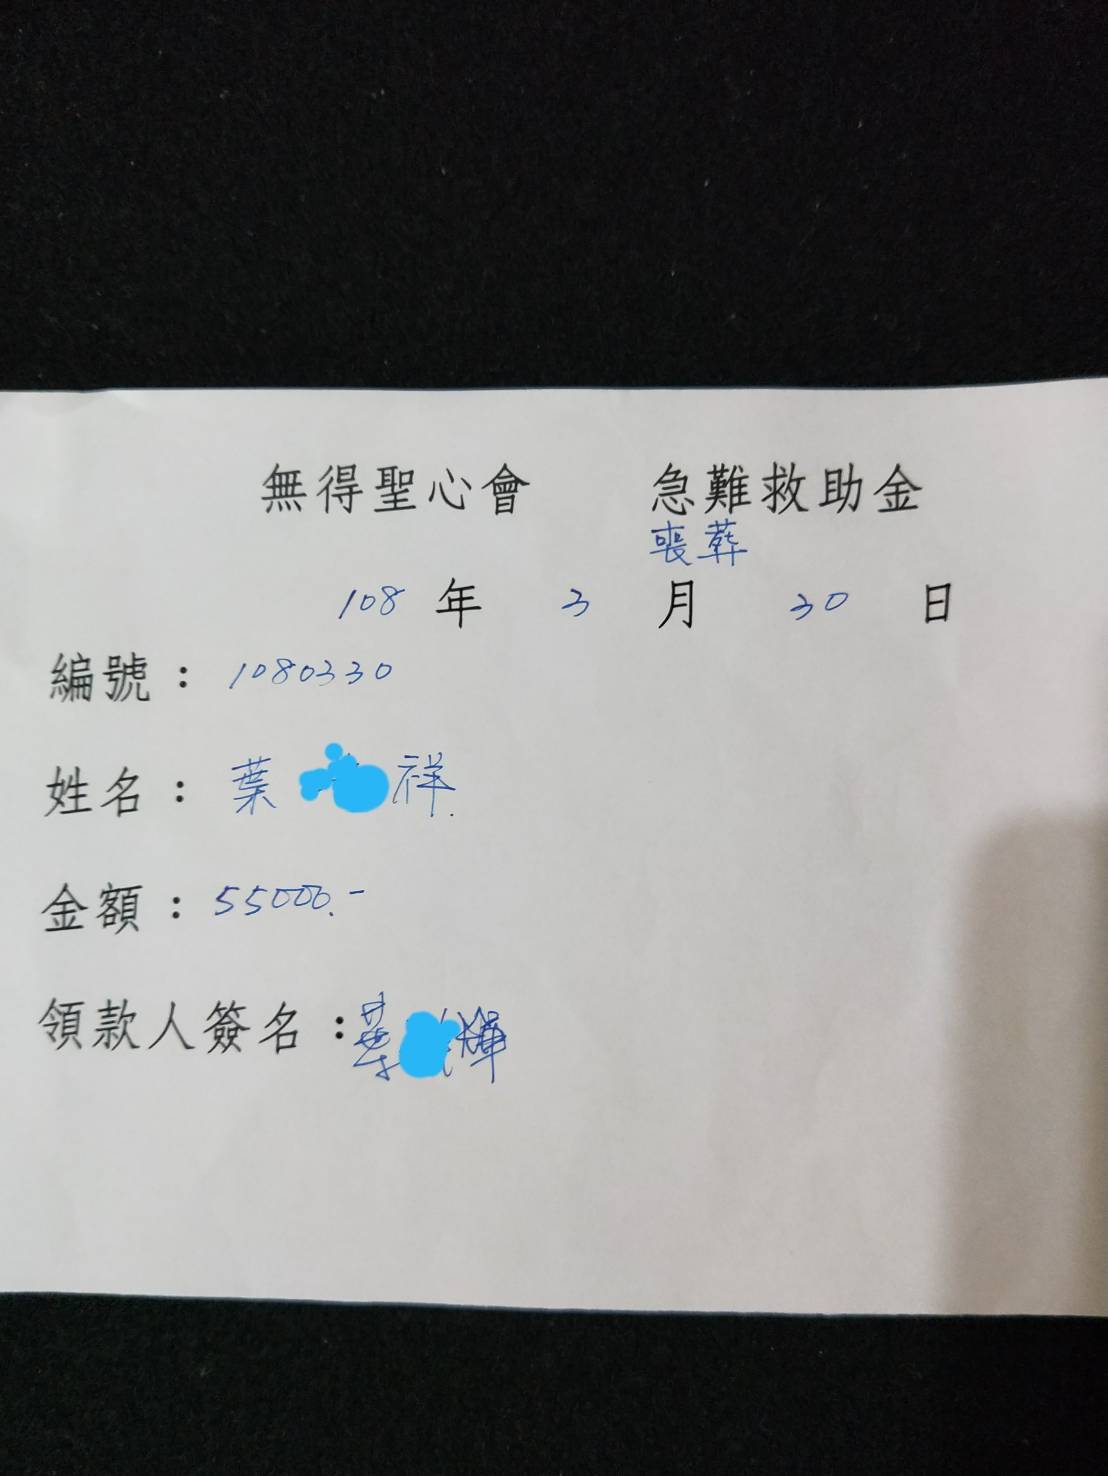 無得聖心會 急難救助金
喪葬
108 年 3 月 30 日
編號：1080330
姓名：葉 祥.
金額：55000.-
領款人簽名：葉 輝